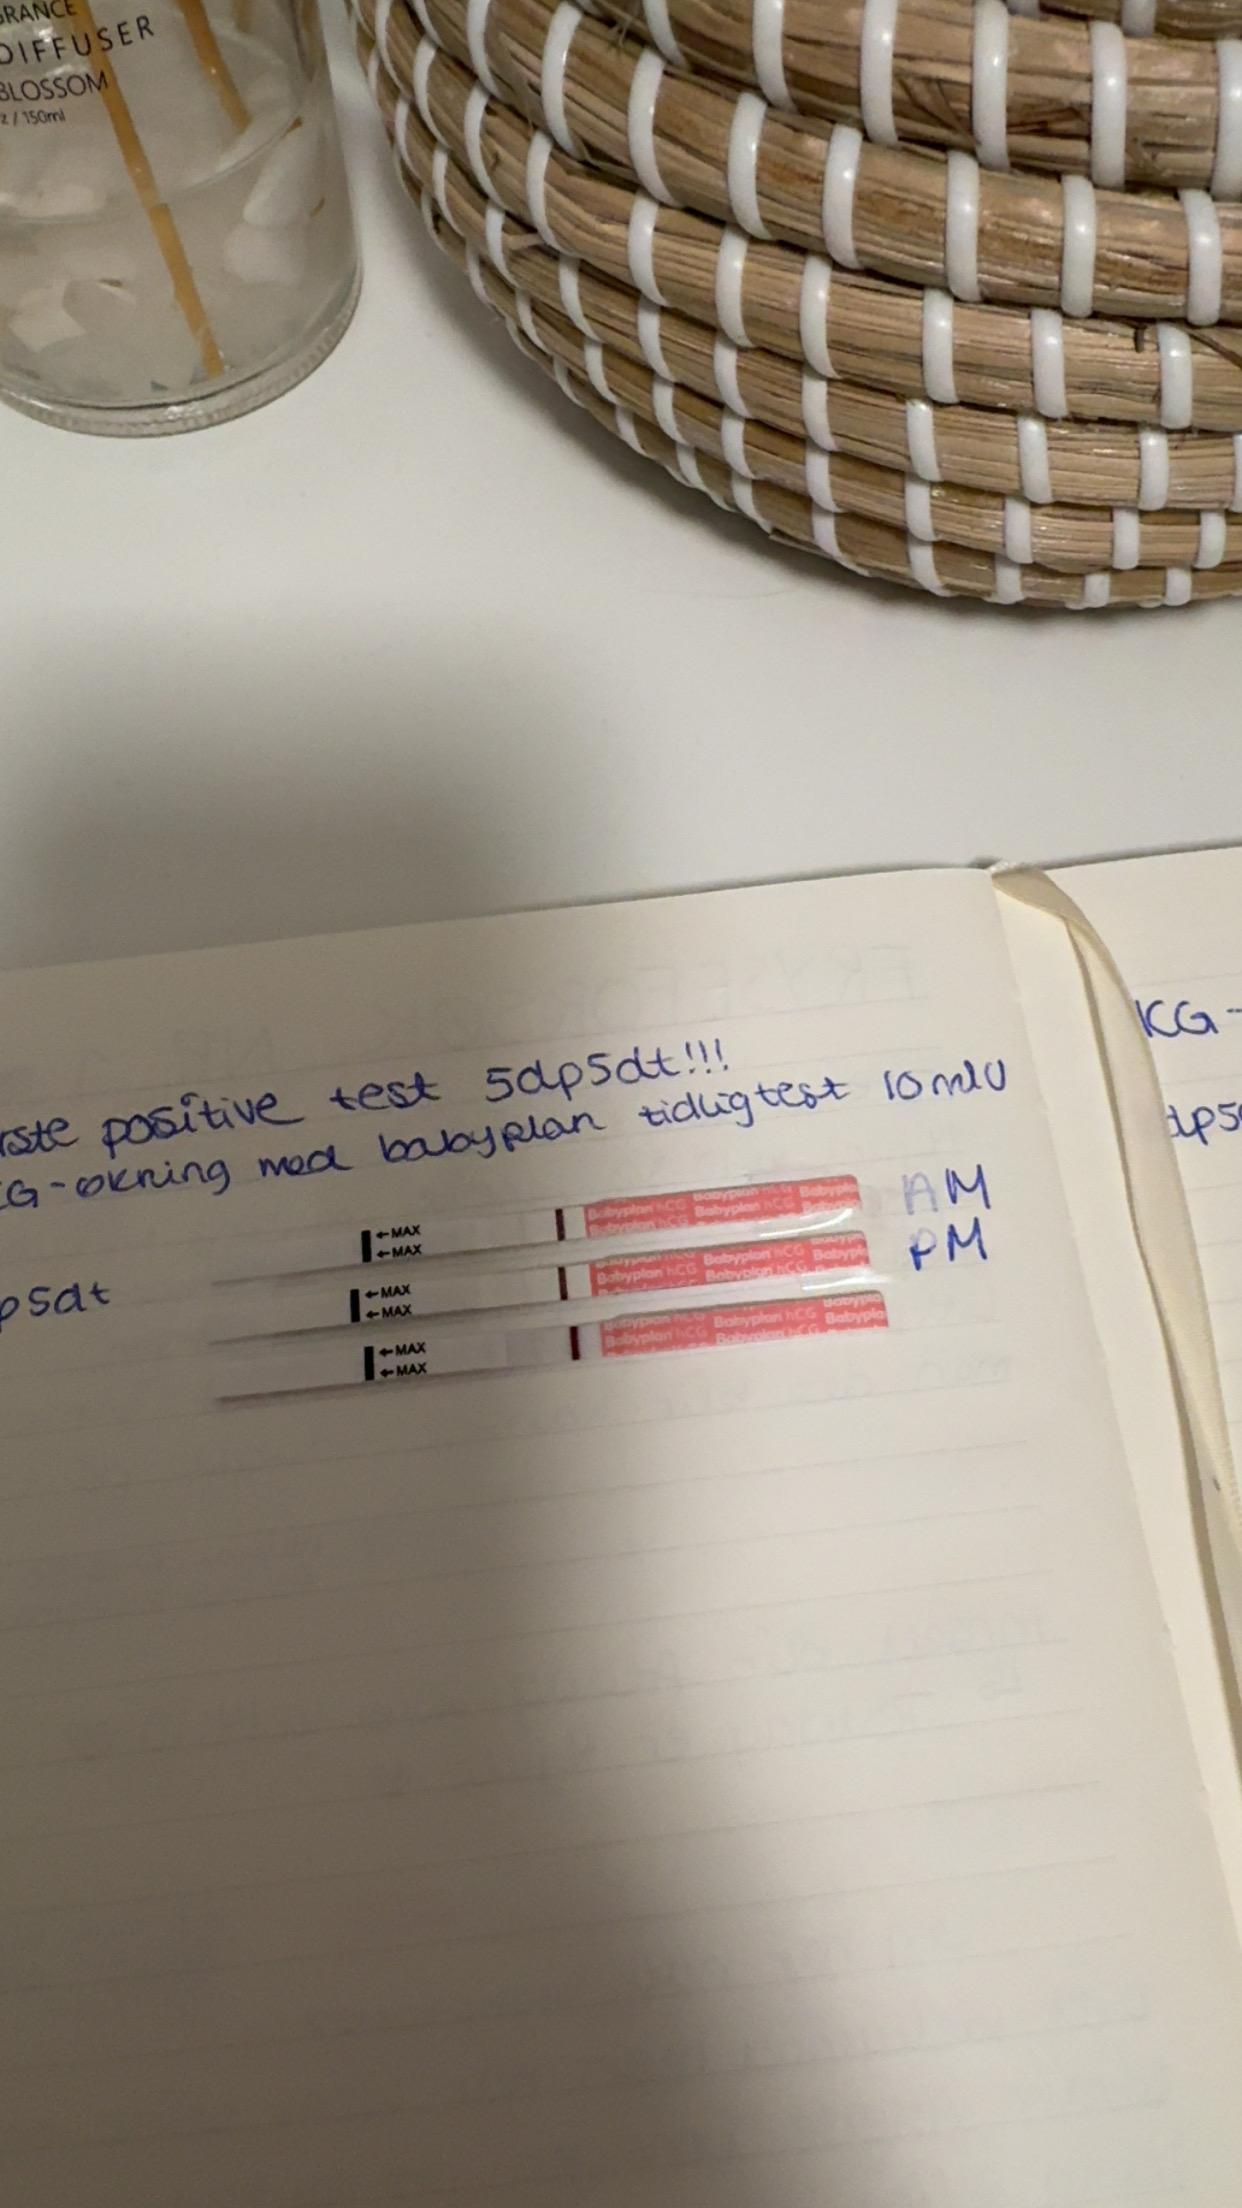 GRANCE
DIFFUSER
BLOSSOM
z / 150ml
rste positive test 5dp5dt!!!
CG-økning med babyplan tidligtest 10 mlU
KCG-
AM
dp5
←MAX
←MAX
Babyplan hCG Babyplan
Babyplan hCG Babyplan hCG
PM
p5dt
←MAX
←MAX
Babyplan hCG Babyplan hCG
←MAX
←MAX
Babyplan hCG Babyplan hCG Babypla
Babyplan hCG Babyplan hCG